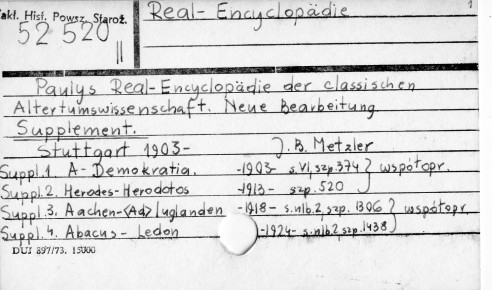 Zakł. Hist. Powsz. Staroż.
52 520
II
Real-Encyclopädie
1
Paulys Real-Encyclopädie der classischen
Altertumswissenschaft. Neue Bearbeitung
Supplement.
Stuttgart 1903- J. B. Metzler
Suppl. 1. A- Demokratia. -1903- s. VI, szp. 374 } współopr.
Suppl. 2. Herodes-Herodotos -1913- szp. 520
Suppl. 3. Aachen-<Ad> Iuglanden -1918- s. nlb. 2, szp. 1306 } współopr.
Suppl. 4. Abacus- Ledon -1924- s. nlb. 2, szp. 1438
DUJ 897/73. 15000